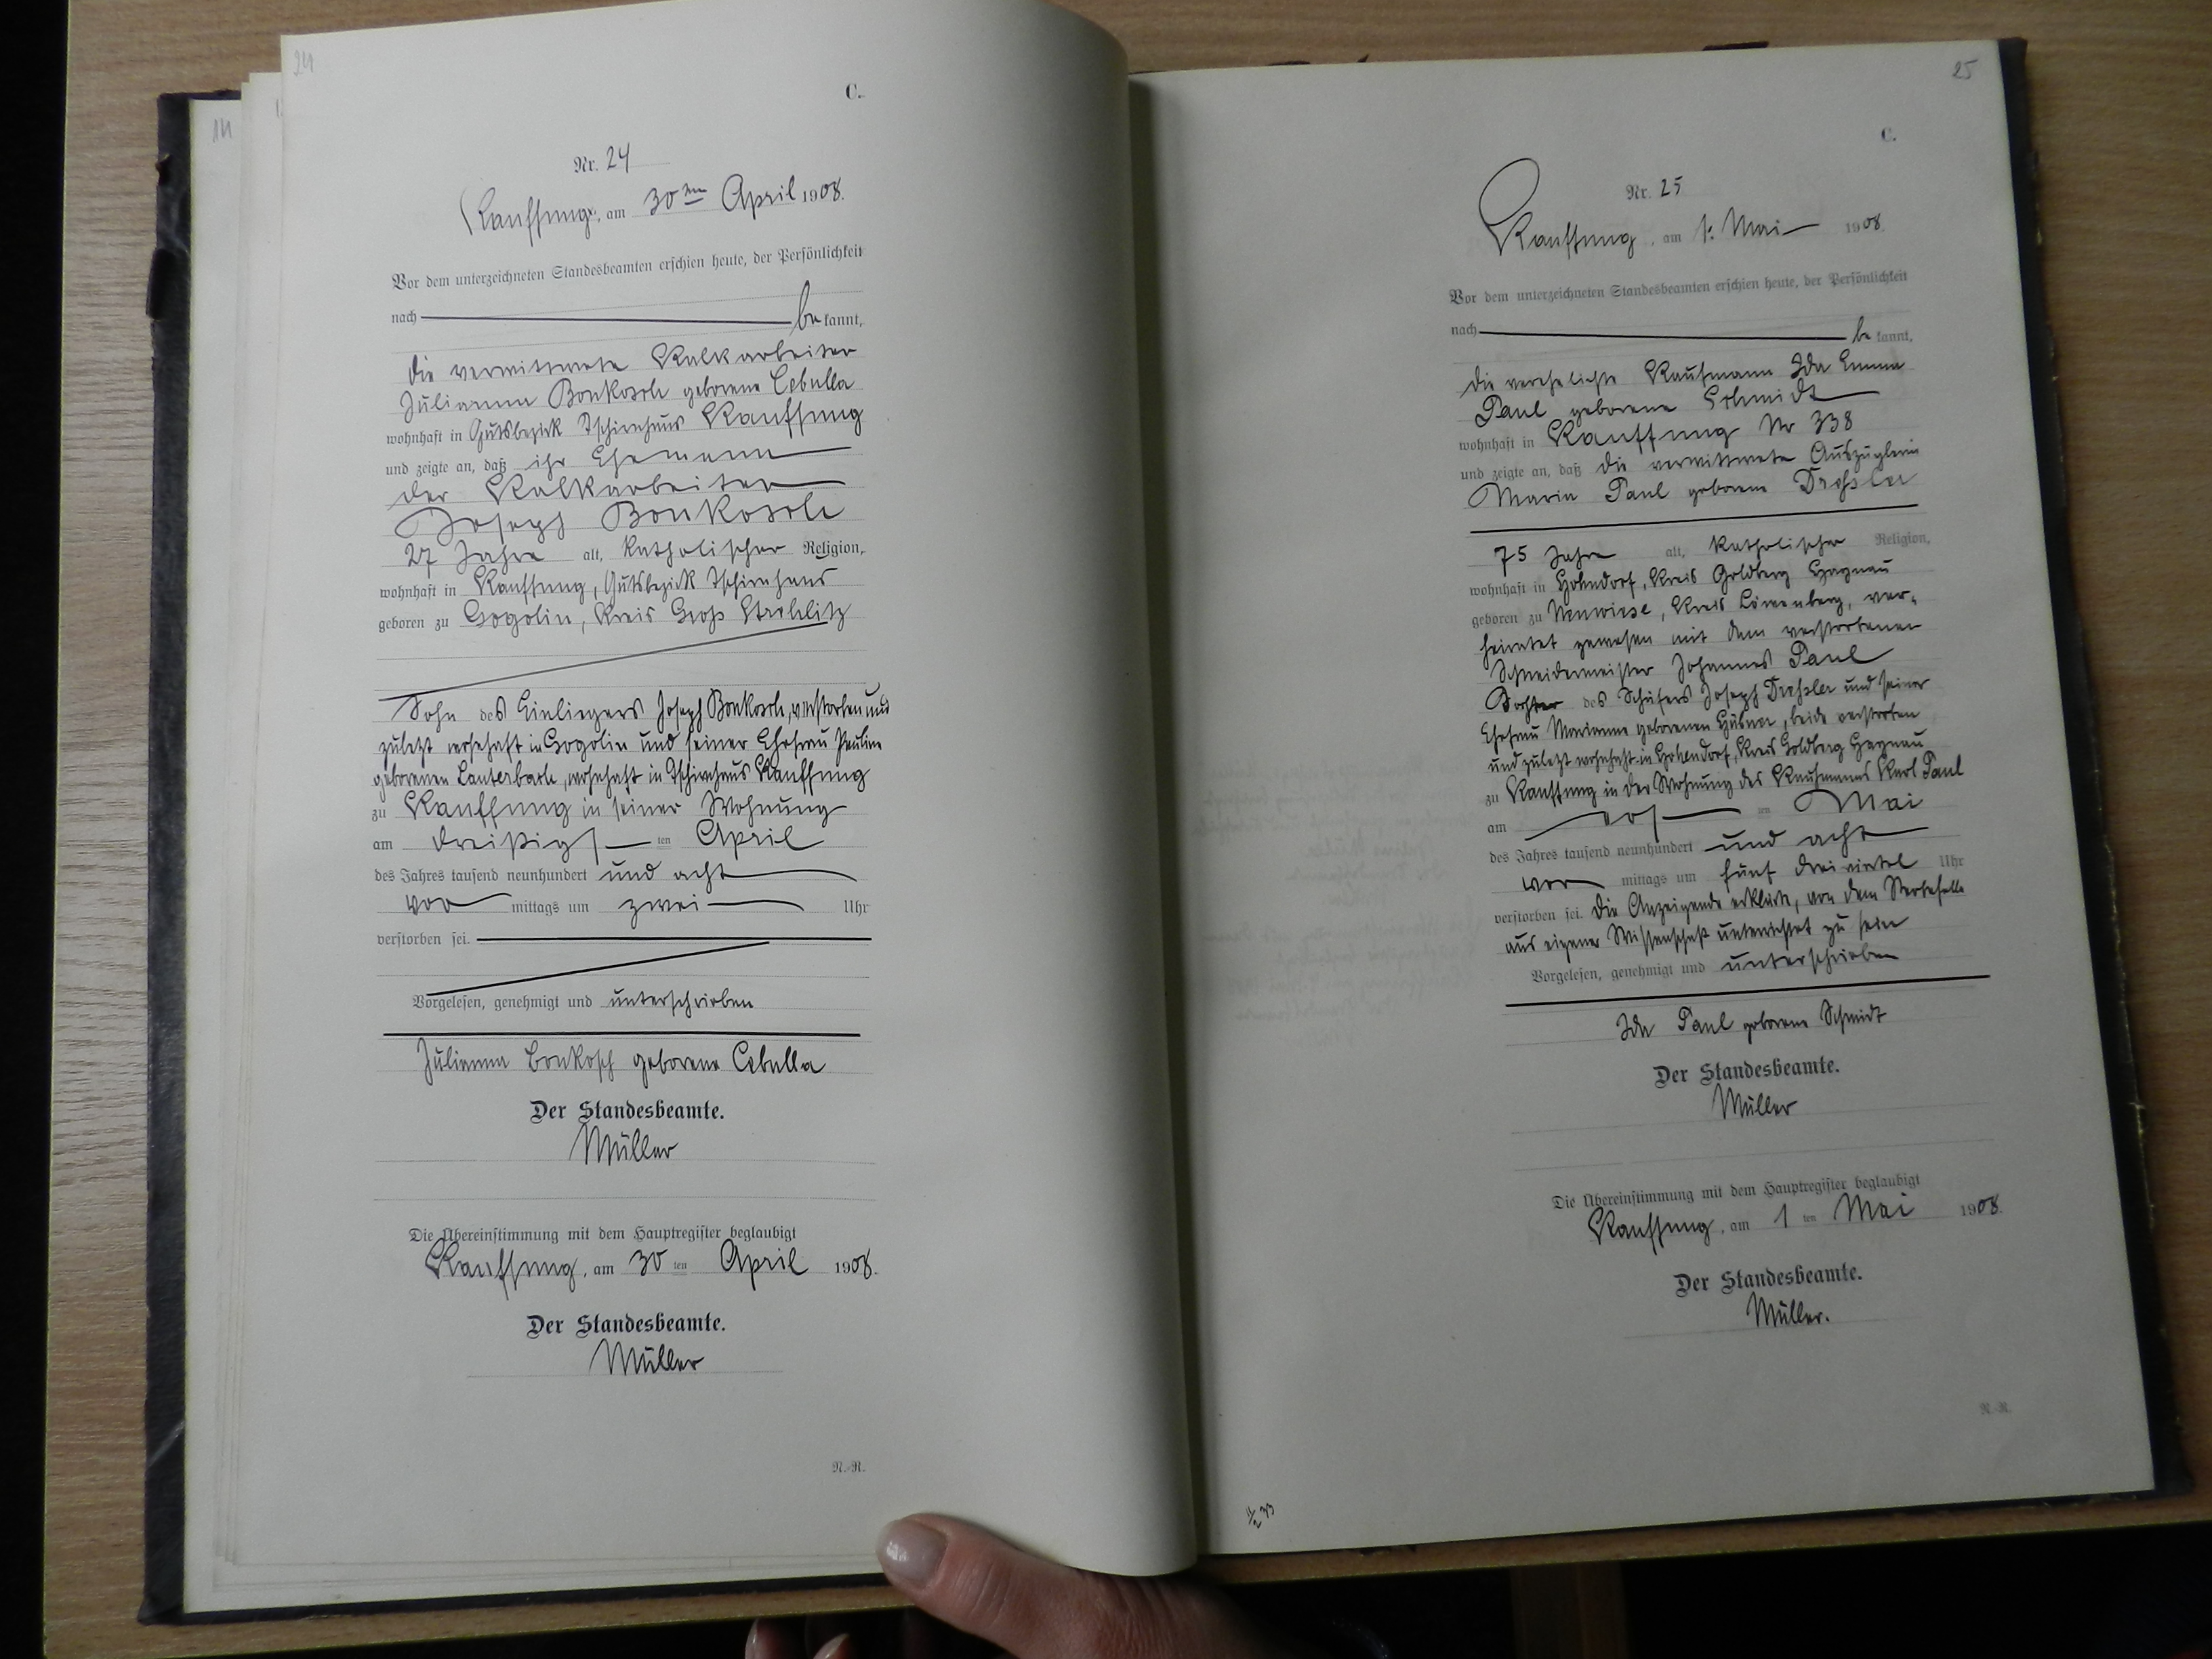 24
14
C.
Nr. 24
Kauffung, am 30ten April 1908.
Vor dem unterzeichneten Standesbeamten erschien heute, der Persönlichkeit
nach be kannt,
die verwittwete Kalkarbeiter
Julianna Bonkosch geborene Cebulla
wohnhaft in Gutsbezirk Tschirnhaus Kauffung
und zeigte an, daß ihr Ehemann
der Kalkarbeiter
Joseph Bonkosch
27 Jahre alt, katholischer Religion,
wohnhaft in Kauffung, Gutsbezirk Tschirnhaus
geboren zu Gogolin, Kreis Groß Strehlitz
Sohn des Einliegers Joseph Bonkosch, verstorben und
zuletzt wohnhaft in Gogolin und seiner Ehefrau Pauline
geborenen Lauterbach, wohnhaft in Tschirnhaus Kauffung
zu Kauffung in seiner Wohnung
am dreißigs ten April
des Jahres tausend neunhundert und acht
vor mittags um zwei Uhr
verstorben sei.
Vorgelesen, genehmigt und unterschrieben
Julianna Bonkosch geborene Cebulla
Der Standesbeamte.
Müller
Die Übereinstimmung mit dem Hauptregister beglaubigt
Kauffung, am 30 ten April 1908.
Der Standesbeamte.
Müller
N.-R.
25
C.
Nr. 25
Kauffung, am 1. Mai 1908.
Vor dem unterzeichneten Standesbeamten erschien heute, der Persönlichkeit
nach be kannt,
die verehelichte Kaufmann Ida Emma
Paul geborene Schmidt
wohnhaft in Kauffung Nr 338
und zeigte an, daß die verwittwete Auszüglerin
Maria Paul geborene Dreßler
75 Jahre alt, katholischer Religion,
wohnhaft in Hohndorf, Kreis Goldberg Haynau
geboren zu Neuwiese, Kreis Löwenberg, ver-
heiratet gewesen mit dem verstorbenen
Schneidermeister Johannes Paul
Tochter des Schäfers Joseph Dreßler und seiner
Ehefrau Marianne geborenen Hübner, beide verstorben
und zuletzt wohnhaft in Hohendorf, Kreis Goldberg Haynau
zu Kauffung in der Wohnung des Kaufmanns Karl Paul
am ers ten Mai
des Jahres tausend neunhundert und acht
vor mittags um fünf dreiviertel Uhr
verstorben sei. Die Anzeigende erklärte, von dem Sterbefalle
aus eigener Wissenschaft unterrichtet zu sein
Vorgelesen, genehmigt und unterschrieben
Ida Paul geborene Schmidt
Der Standesbeamte.
Müller
Die Übereinstimmung mit dem Hauptregister beglaubigt
Kauffung, am 1 ten Mai 1908.
Der Standesbeamte.
Müller.
N.-R.